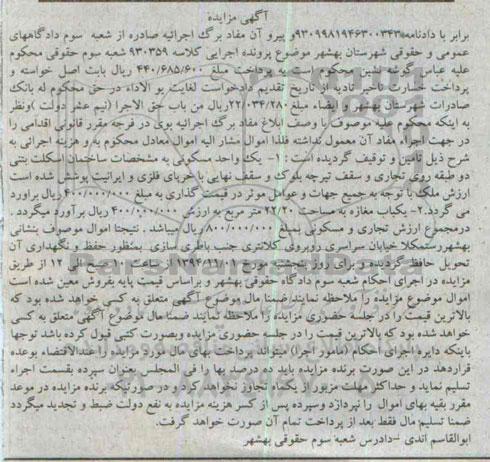 آگهی مزایده
برابر با دادنامه۹۳۰۹۹۸۱۹۴۶۳۰۰۳۴۳و پیرو آن مفاد برگ اجرائیه صادره از شعبه سوم دادگاههای
عمومی و حقوقی شهرستان بهشهر موضوع پرونده اجرایی کلاسه ۹۳۰۳۵۹ شعبه سوم حقوقی محکوم
علیه عباس گوئی نشین محکوم است به پرداخت مبلغ ۴۴۰/۶۸۵/۶۰۰ ریال بابت اصل خواسته و
پرداخت خسارت تاخیر تادیه از تاریخ تقدیم دادخواست لغایت یو الاداء در حق محکوم له بانک
صادرات شهرستان بهشهر و ایضاء مبلغ ۲۲/۰۳۴/۲۸۰ریال من باب حق الاجرا (نیم عشر دولت) ونظر
به اینکه محکوم علیه موصوف با وصف ابلاغ مفاد برگ اجرائیه بوی در فرجه مقرر قانونی اقدامی را
در جهت اجراء مفاد آن معمول نداشته فلذا اموال مشار الیه اموال معادل محکوم به و هزینه اجرائی به
شرح ذیل تامین و توقیف گردیده است : ۱- یک واحد مسکونی به مشخصات ساختمان اسکلت بتنی
دو طبقه روی تجاری و سقف تیرچه بلوک و سقف نهایی با خرپای فلزی و ایرانیت پوشش شده است
ارزش ملک با توجه به جمیع جهات و عوامل موثر در قیمت گذاری به مبلغ ۴۰۰/۰۰۰/۰۰۰ ریال براورد
می گردد.۲- یکباب مغازه به مساحت ۲۲/۲۰ متر مربع به ارزش ۴۰۰/۰۰۰/۰۰۰ ریال برآورد میگردد .
درمجموع ارزش تجاری و مسکونی بمبلغ ۸۰۰/۰۰۰/۰۰۰ ریال میباشد . نتیجتا اموال موصوف بنشانی
بهشهررستمکلا خیابان سراسری روبروی کلانتری جنب باطری سازی بمنظور حفظ و نگهداری آن
تحویل حافظ گردیده و برای روز پنجشنبه مورخ ۱۳۹۴/۱۱/۰۱ از ساعت ۱۰ صبح الی ۱۲ از طریق
مزایده در اجرای احکام شعبه سوم دادگاه حقوقی بهشهر و براساس قیمت پایه بفروش معین شده است
اموال موضوع مزایده را ملاحظه نمایند.ضمنا مال موضوع آگهی متعلق به کسی خواهد شده بود که
بالاترین قیمت را در جلسه حضوری مزایده را ملاحظه نمایند ضمنا مال موضوع آگهی متعلق به کسی
خواهد شده بود که بالاترین قیمت را در جلسه حضوری مزایده وبصورت کتبی قبول کرده باشد توجها
باینکه دایره اجرای احکام (مامور اجرا) میتواند پرداخت بهای مال مورد مزایده را عندالاقتضاء بوعده
قراردهد در این صورت برنده مزایده باید ده درصد بها را فی المجلس بعنوان سپرده بقسمت اجراء
تسلیم نماید و حداکثر مهلت مزبور از یکماه تجاوز نخواهد کرد و در صورتیکه برنده مزایده در موعد
مقرر بقیه بهای اموال را نپردازد وسپرده پس از کسر هزینه مزایده به نفع دولت ضبط و تجدید میگردد
ضمنا تسلیم مال فقط بعد از پرداخت تمام آن صورت خواهد گرفت.
ابوالقاسم اندی -دادرس شعبه سوم حقوقی بهشهر
ParsNamadData